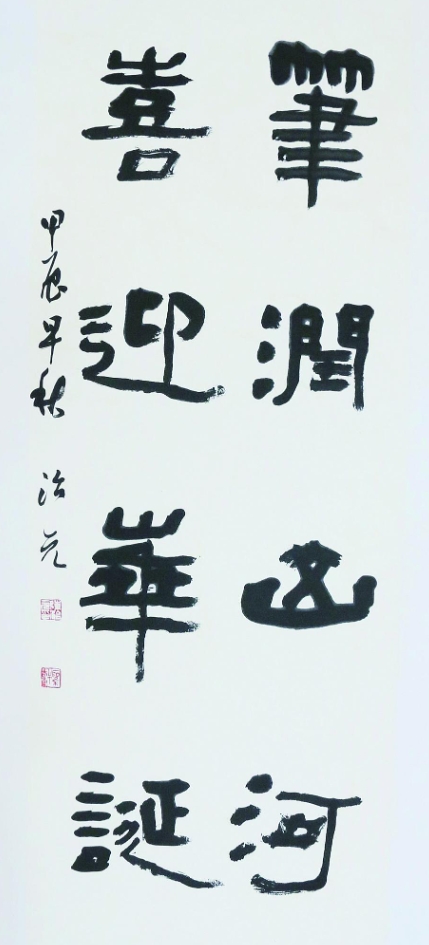 筆潤山河
喜迎華誕
甲辰早秋 治元